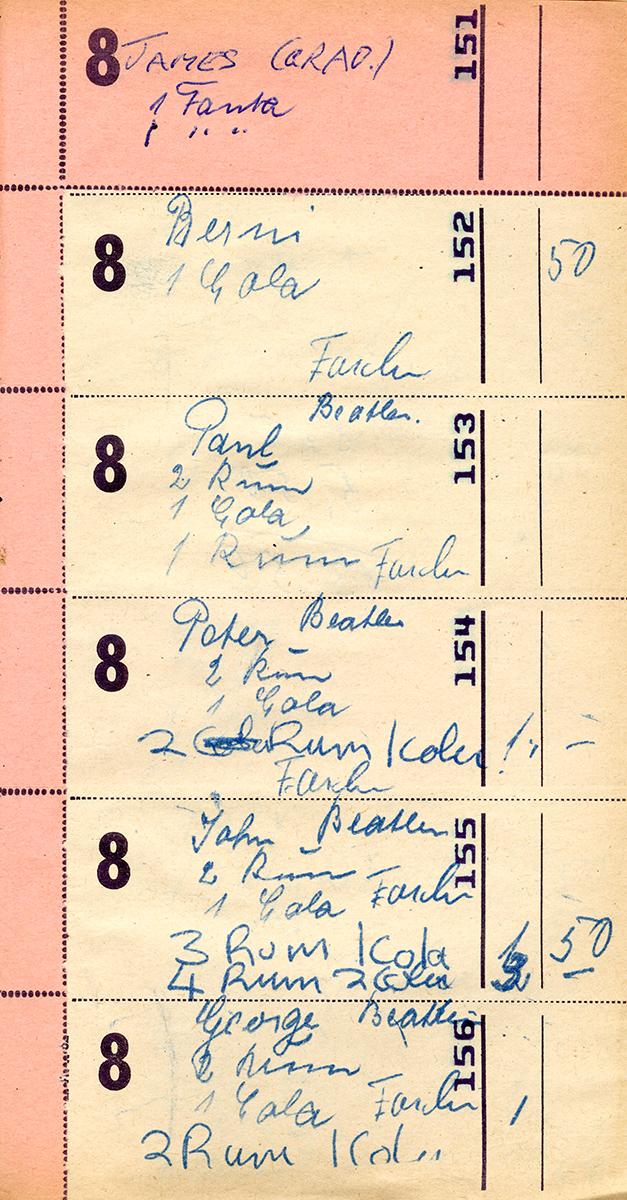 8 JAMES (GRAD.) 151
1 Fanta
1 " "
8 Berni 152
1 Cola 50
Fascher
Beatles.
8 Paul 153
2 Rum
1 Cola,
1 Rum Fascher
8 Peter Beatles 154
2 Rum
1 Cola
2 Rum 1 Cola 1,, –
Fascher
8 John Beatles 155
2 Rum
1 Cola Fascher
3 Rum 1 Kola 50
4 Rum 2 Cola
8 George Beatles 156
2 Rum
1 Cola Fascher 1
2 Rum 1 Kola